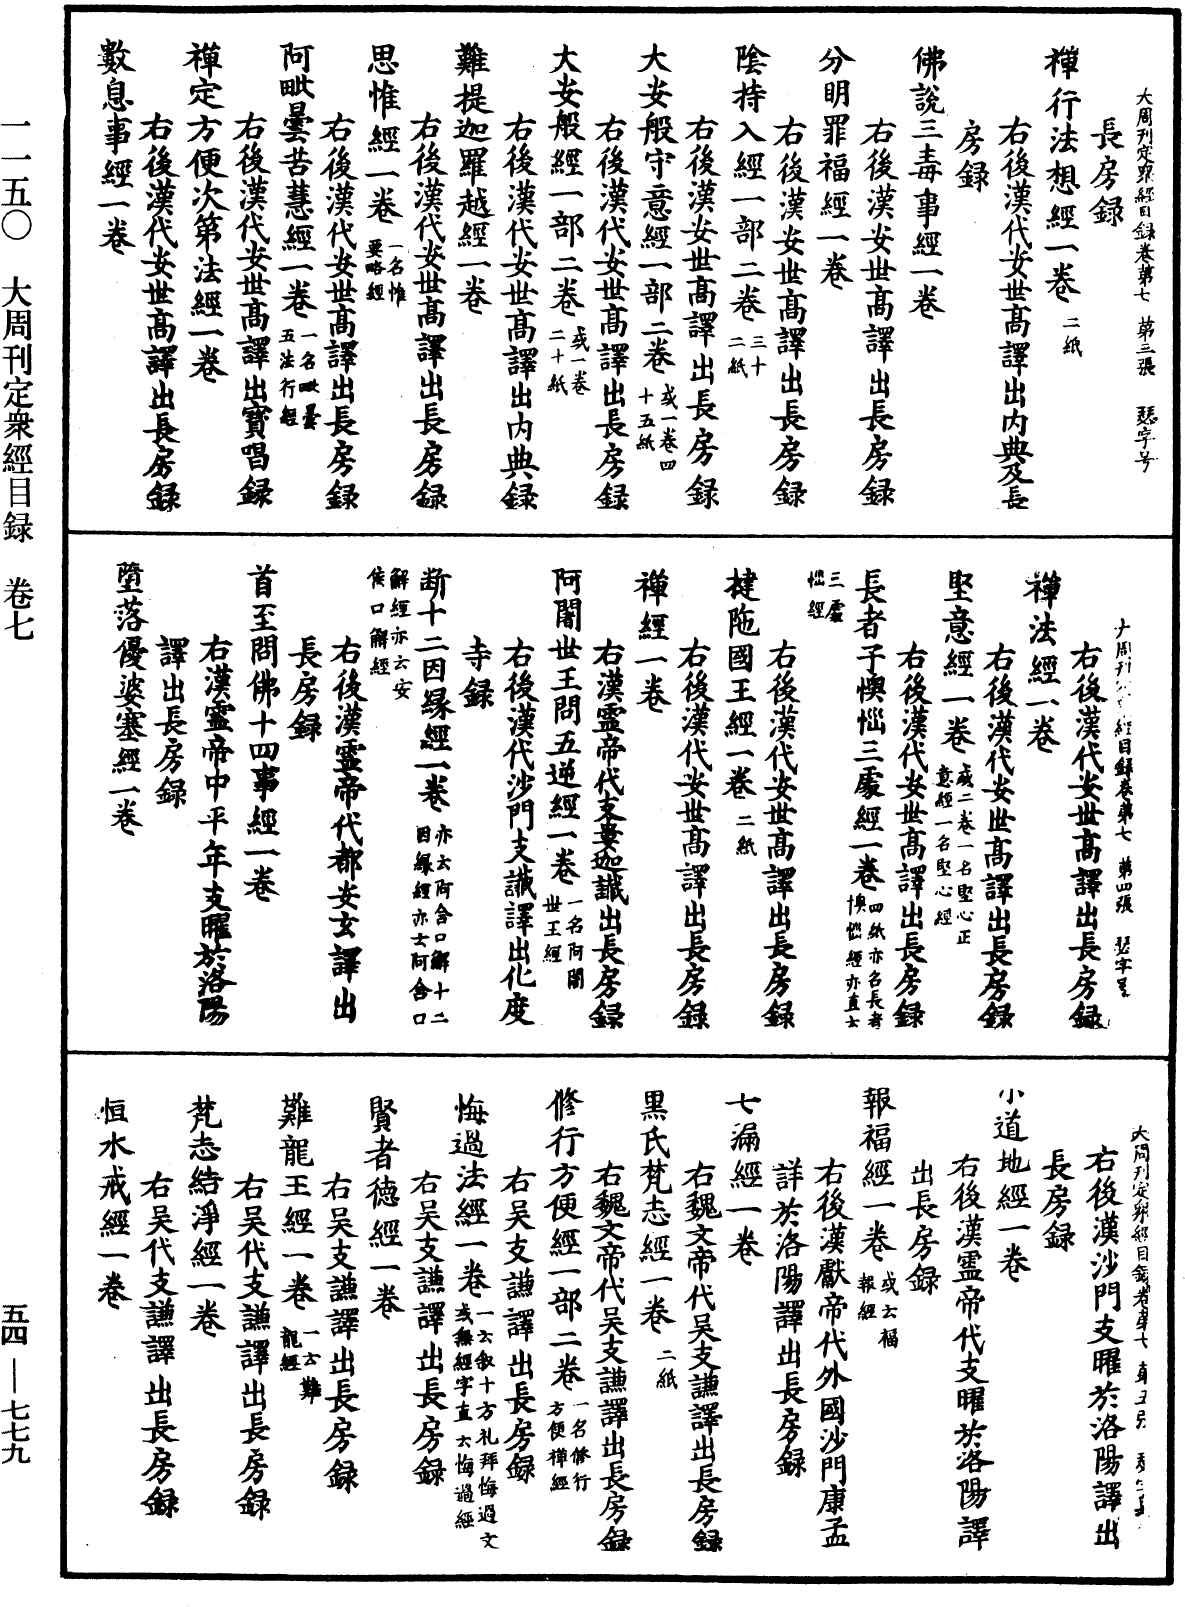 大周刊定衆經目録卷第七　第三張　瑟字号
長房録
禪行法想經一卷 二紙
右後漢代安世高譯出內典及長
房録
佛說三毒事經一卷
右後漢安世高譯出長房録
分明罪福經一卷
右後漢安世高譯出長房録
陰持入經一部二卷 三十二紙
右後漢安世高譯出長房録
大安般守意經一部二卷 或一卷四十五紙
右後漢代安世高譯出長房録
大安般經一部二卷 或一卷二十紙
右後漢代安世高譯出內典録
難提迦羅越經一卷
右後漢代安世高譯出長房録
思惟經一卷 一名惟要略經
右後漢代安世高譯出長房録
阿毗曇苦慧經一卷 一名毗曇五法行經
右後漢代安世高譯出寶唱録
禪定方便次第法經一卷
右後漢代安世高譯出長房録
數息事經一卷
大周刊經目録卷第七　第四張　瑟字号
右後漢代安世高譯出長房録
禪法經一卷
右後漢代安世高譯出長房録
堅意經一卷 或二卷一名堅心正意經一名堅心經
右後漢代安世高譯出長房録
長者子懊惱三處經一卷 四紙亦名長者懊惱經亦直云
三處惱經
右後漢代安世高譯出長房録
揵陁國王經一卷 二紙
右後漢代安世高譯出長房録
禪經一卷
右漢靈帝代支婁迦讖出長房録
阿闍世王問五逆經一卷 一名阿闍世王經
右後漢代沙門支讖譯出化度
寺録
断十二因縁經一卷 亦云阿含口解十二因縁經亦云阿含口
解經亦云安侯口解經
右後漢靈帝代都安玄譯出
長房録
首至問佛十四事經一卷
右漢靈帝中平年支曜於洛陽
譯出長房録
墮落優婆塞經一卷
大周刊定衆經目録卷第七　第五張
右後漢沙門支曜於洛陽譯出
長房録
小道地經一卷
右後漢靈帝代支曜於洛陽譯
出長房録
報福經一卷 或云福報經
右後漢獻帝代外國沙門康孟
詳於洛陽譯出長房録
七漏經一卷
右魏文帝代吴支謙譯出長房録
黒氏梵志經一卷 二紙
右魏文帝代吴支謙譯出長房録
修行方便經一部二卷 一名修行方便禅經
右吴支謙譯出長房録
悔過法經一卷 一云叙十方礼拜悔過文或無經字直云悔過經
右吴支謙譯出長房録
賢者德經一卷
右吴支謙譯出長房録
難龍王經一卷 一云難龍經
右吴代支謙譯出長房録
梵志結淨經一卷
右吴代支謙譯出長房録
恒水戒經一卷
一一五〇　大周刊定衆經目録　卷七　五四—七七九